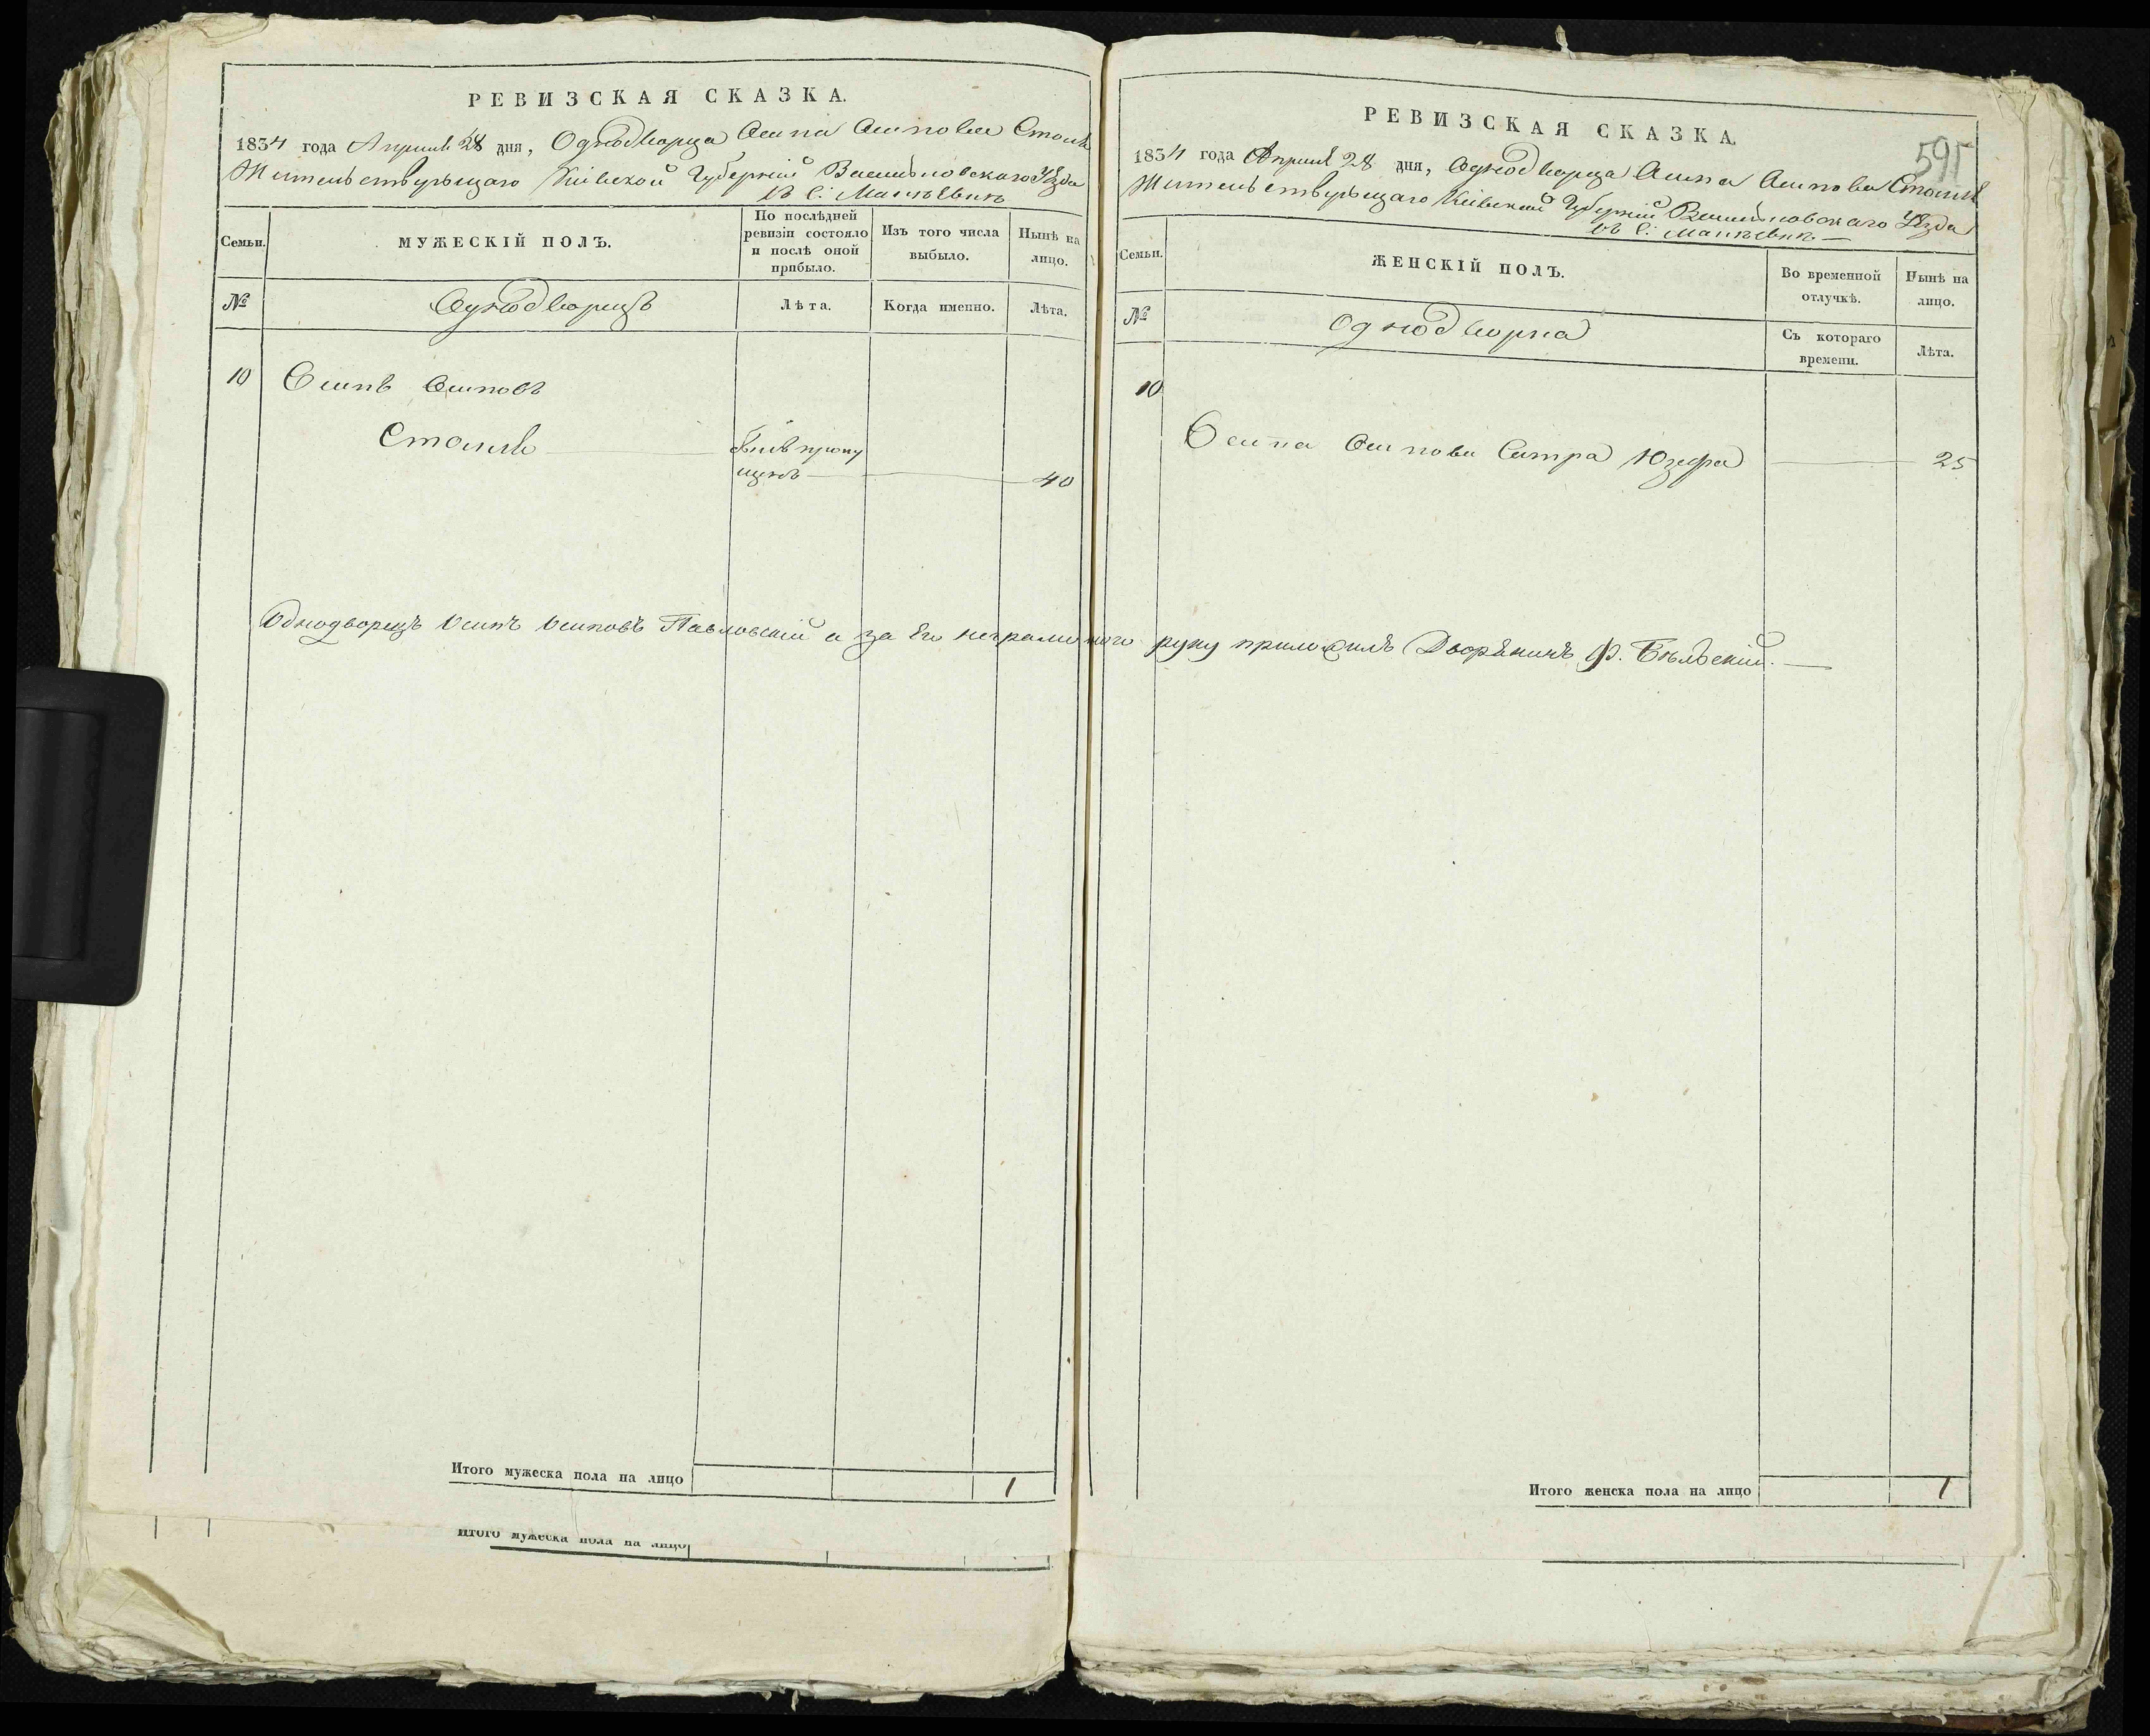 РЕВИЗСКАЯ СКАЗКА.
1834 года Апреля 28 дня, Однодворца Осипа Осипова
Жительствующаго Кіевской Губерніи Васильковскаго Уѣзда
въ С.
Семьи.
МУЖЕСКІЙ ПОЛЪ.
По послѣдней ревизіи состояло и послѣ оной прибыло.
Изъ того числа выбыло.
Нынѣ на лицо.
№
Однодворецъ
Лѣта.
Когда именно.
Лѣта.
10
Осипъ Осиповъ
40
Однодворецъ Осипъ Осиповъ Павловскій а за его неграмотного руку приложилъ Дворянинъ Ф. Бѣльскій.
Итого мужеска пола на лицо
1
Итого мужеска пола на лицо
РЕВИЗСКАЯ СКАЗКА.
591
1834 года Апреля 28 дня, Однодворца Осипа Осипова
Жительствующаго Кіевской Губерніи Васильковскаго Уѣзда
въ С.
Семьи.
ЖЕНСКІЙ ПОЛЪ.
Во временной отлучкѣ.
Нынѣ на лицо.
№
Однодворка
Съ котораго времени.
Лѣта.
10
Осипа Осипова Сестра Юзефа
25
Итого женска пола на лицо
1